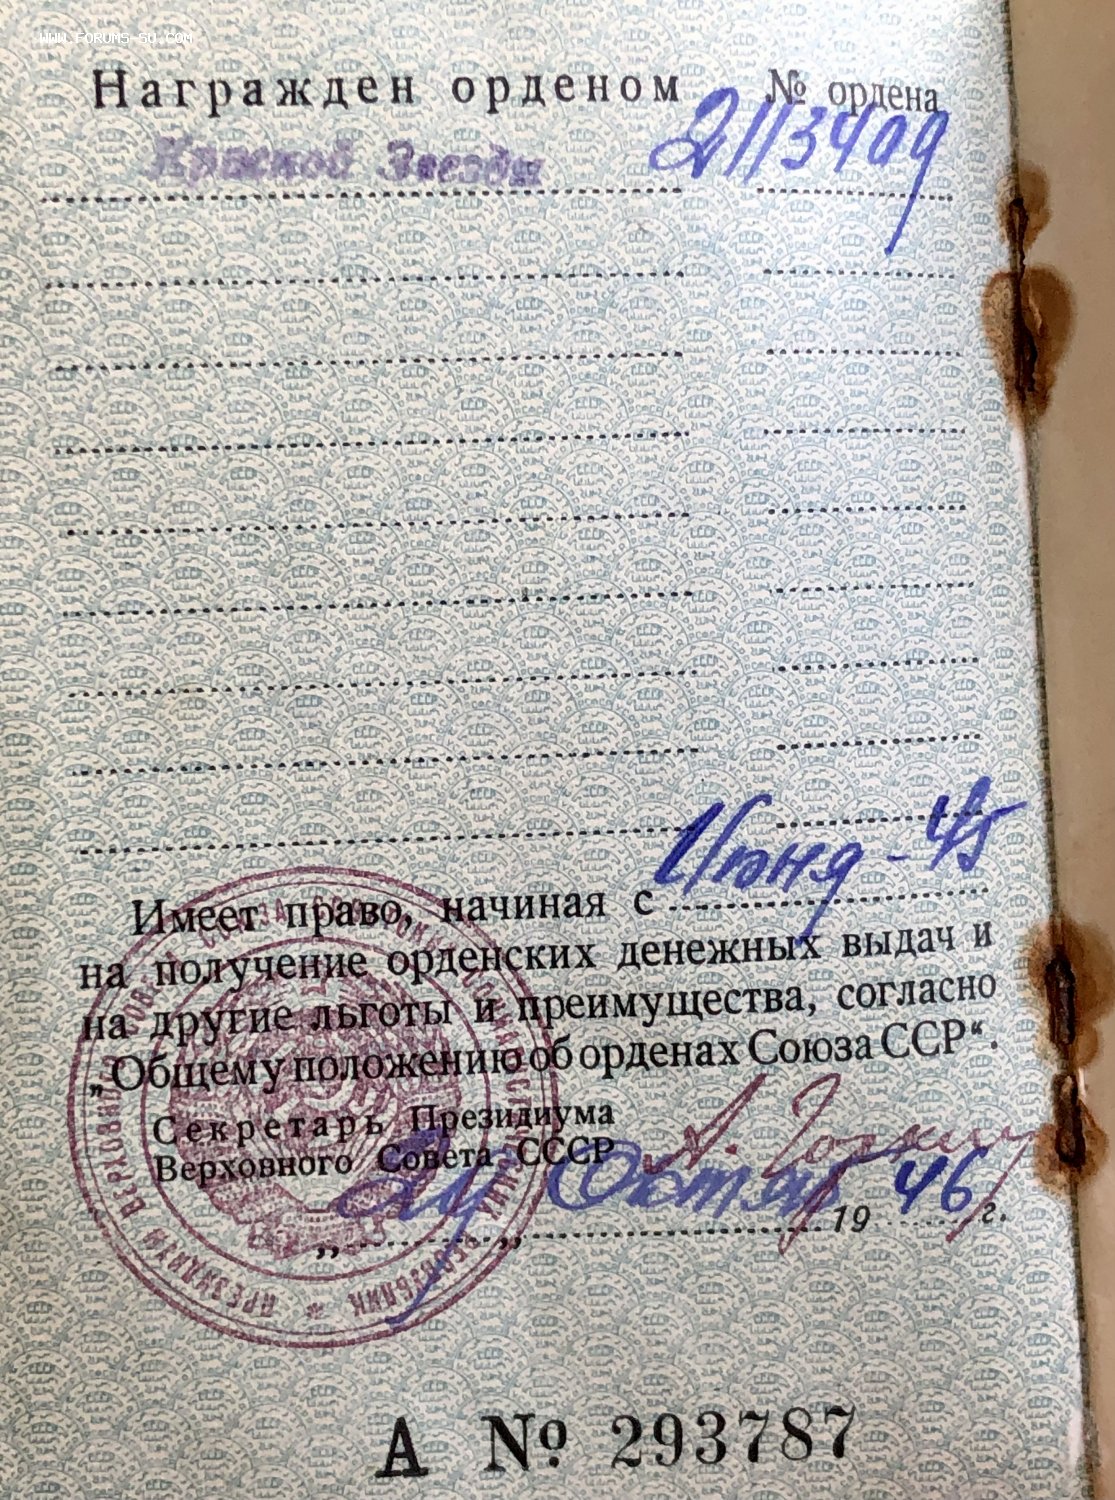 WWW.FORUMS-SU.COM
Награжден орденом № ордена
Красной Звезды 2113409
Имеет право, начиная с Июня - 45
на получение орденских денежных выдач и
на другие льготы и преимущества, согласно
„Общему положению об орденах Союза ССР“.
Секретарь Президиума
Верховного Совета СССР А. Горкин
„24„ Октяб 1946 г.
А № 293787